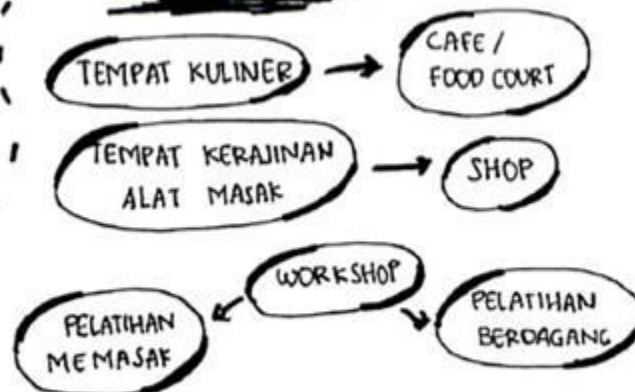 TEMPAT KULINER
CAFE /
FOOD COURT
TEMPAT KERAJINAN
ALAT MASAK
SHOP
WORKSHOP
PELATIHAN
MEMASAK
PELATIHAN
BERDAGANG